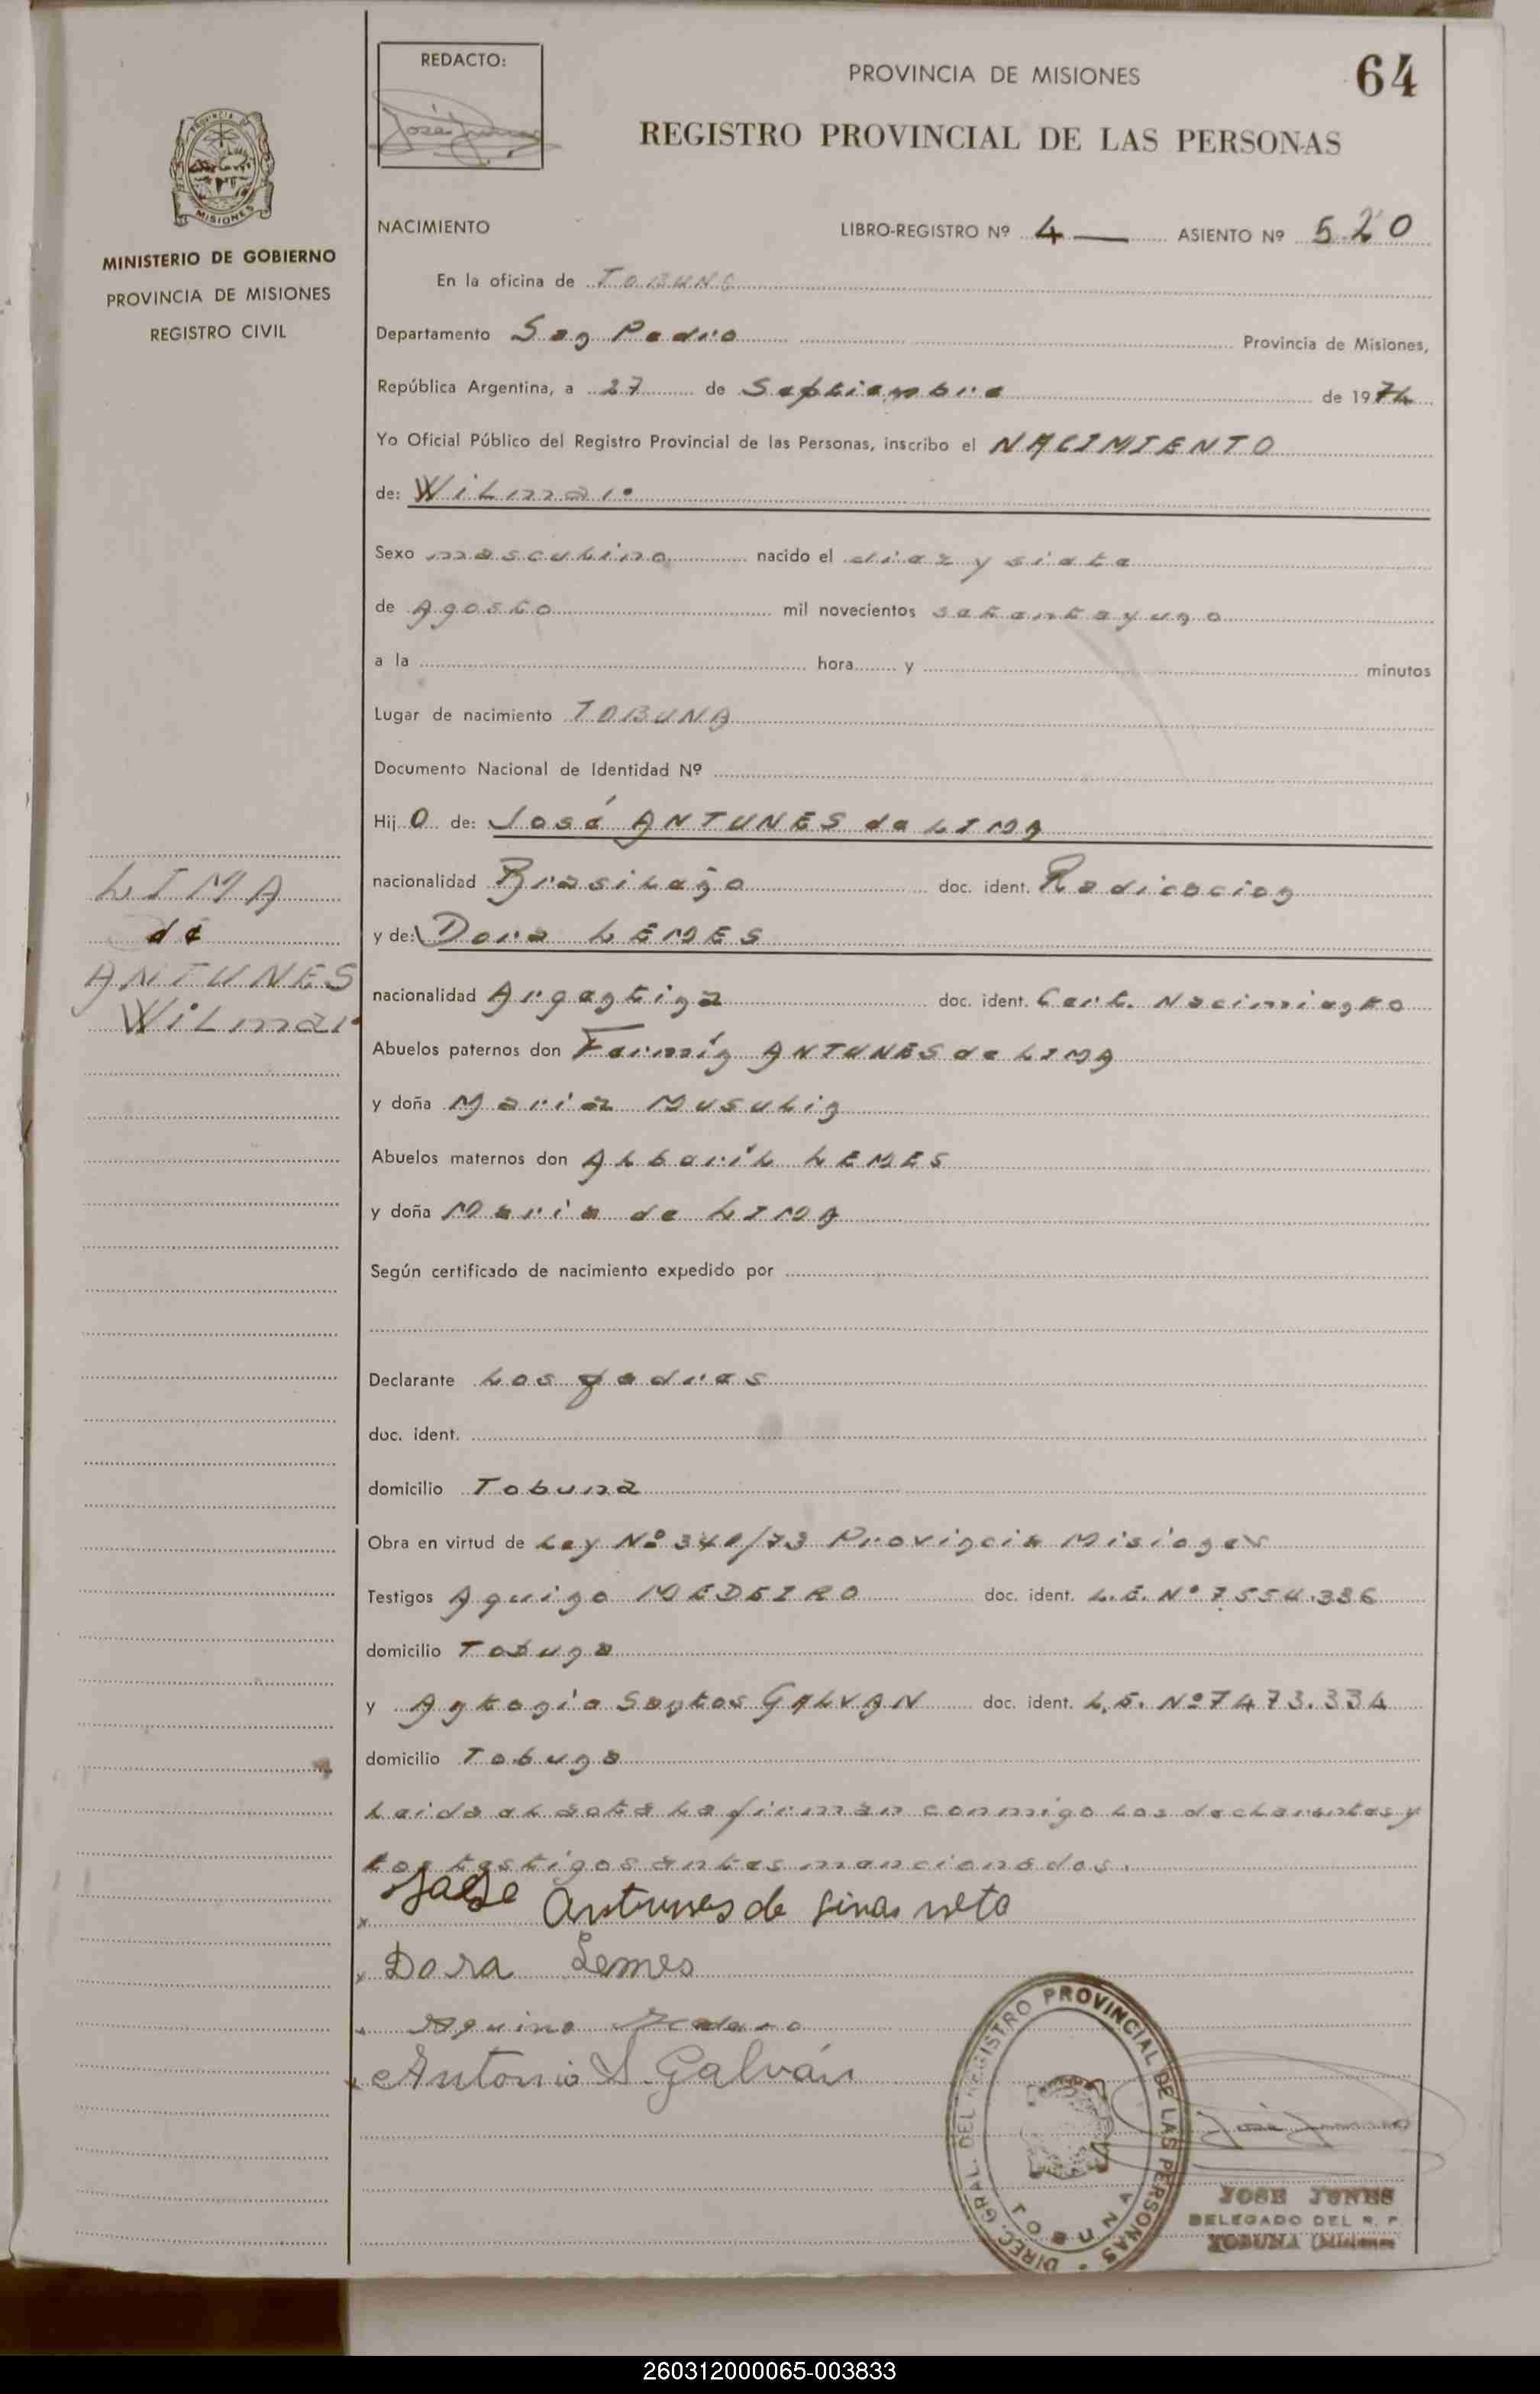 REDACTO:
PROVINCIA DE MISIONES
64
REGISTRO PROVINCIAL DE LAS PERSONAS
MISIONES
MINISTERIO DE GOBIERNO
PROVINCIA DE MISIONES
REGISTRO CIVIL
NACIMIENTO LIBRO-REGISTRO Nº 4 — ASIENTO Nº 520
En la oficina de TOBUNA
Departamento San Pedro Provincia de Misiones,
República Argentina, a 27 de Septiembre de 1974
Yo Oficial Público del Registro Provincial de las Personas, inscribo el NACIMIENTO
de: Wilmar
Sexo masculino nacido el diez y siete
de Agosto mil novecientos setenta y uno
a la hora y minutos
Lugar de nacimiento TOBUNA
Documento Nacional de Identidad Nº
Hijo de: José ANTUNES de LIMA
LIMA
de
ANTUNES
Wilmar
nacionalidad Brasileño doc. ident. Radicacion
y de: Dora LEMES
nacionalidad Argentina doc. ident. Cert. Nacimiento
Abuelos paternos don Fermín ANTUNES de LIMA
y doña Maria Musulin
Abuelos maternos don Albaril LEMES
y doña Maria de LIMA
Según certificado de nacimiento expedido por
Declarante Los padres
doc. ident.
domicilio Tobuna
Obra en virtud de Ley Nº 340/73 Provincia Misiones
Testigos Aquino MEDEIRO doc. ident. L.E. Nº 7.554.336
domicilio Tobuna
y Antonio Santos GALVAN doc. ident. L.E. Nº 7473.334
domicilio Tobuna
Leida el acta la firman conmigo los declarantes y
los testigos antes mencionados.
x Antunes de Lima neto
x Dora Lemes
Aquino
x Antonio S. Galván
DIREC. GRAL. DEL REGISTRO PROVINCIAL DE LAS PERSONAS
TOBUNA
JOSE JUNES
DELEGADO DEL R. P.
TOBUNA (Misiones
260312000065-003833